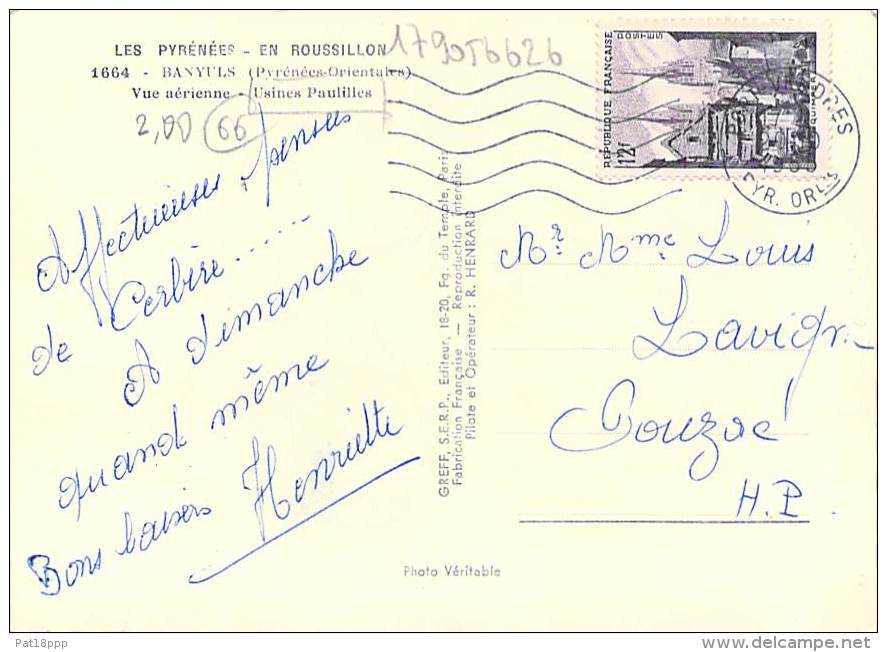 LES PYRÉNÉES - EN ROUSSILLON
1664 - BANYULS (Pyrénées-Orientales)
Vue aérienne - Usines Paulilles
179OT6626
2,00 66
Affectueuses pensées
de Cerbère......
A dimanche
quand même
Bons baisers Henriette
GREFF, S.E.R.P., Editeur, 18-20, Fg. du Temple, Paris
Fabrication Française — Reproduction interdite
Pilote et Opérateur : R. HENRARD
RÉPUBLIQUE FRANÇAISE
POSTES
12F
QUIMPER
VENDRES
PYR. ORLES
Mr. Mme Louis
Lavigne
Pouzac
H.P.
Photo Véritable
Pat18ppp
delcampe.net